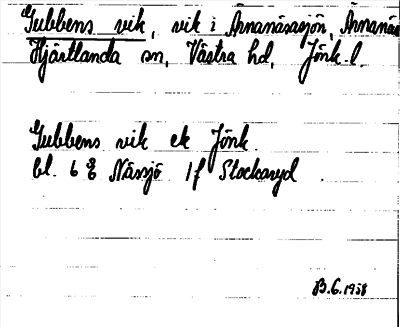 Gubbens vik, vik i Årnanäsasjön, Årnanäs
Hjärtlanda sn, Västra hd, Jönk. l.
Gubbens vik ek Jönk.
bl. 6 E Nässjö 1f Stockaryd
B.G. 1958